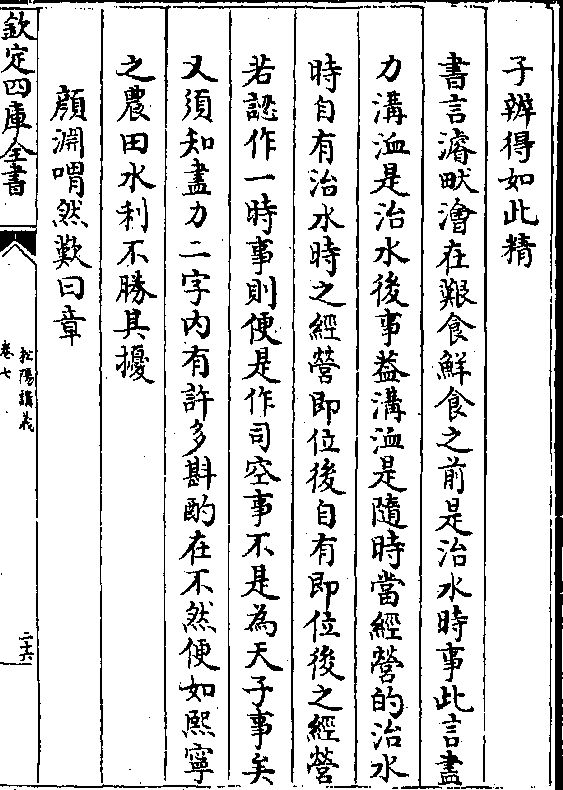 子辨得如此精
書言濬畎澮在艱食鮮食之前是治水時事此言盡
力溝洫是治水後事蓋溝洫是隨時當經營的治水
時自有治水時之經營即位後自有即位後之經營
若認作一時事則便是作司空事不是為天子事矣
又須知盡力二字內有許多斟酌在不然便如熙寧
之農田水利不勝其擾
顔淵喟然歎曰章
欽定四庫全書
松陽講義
卷七
二十六